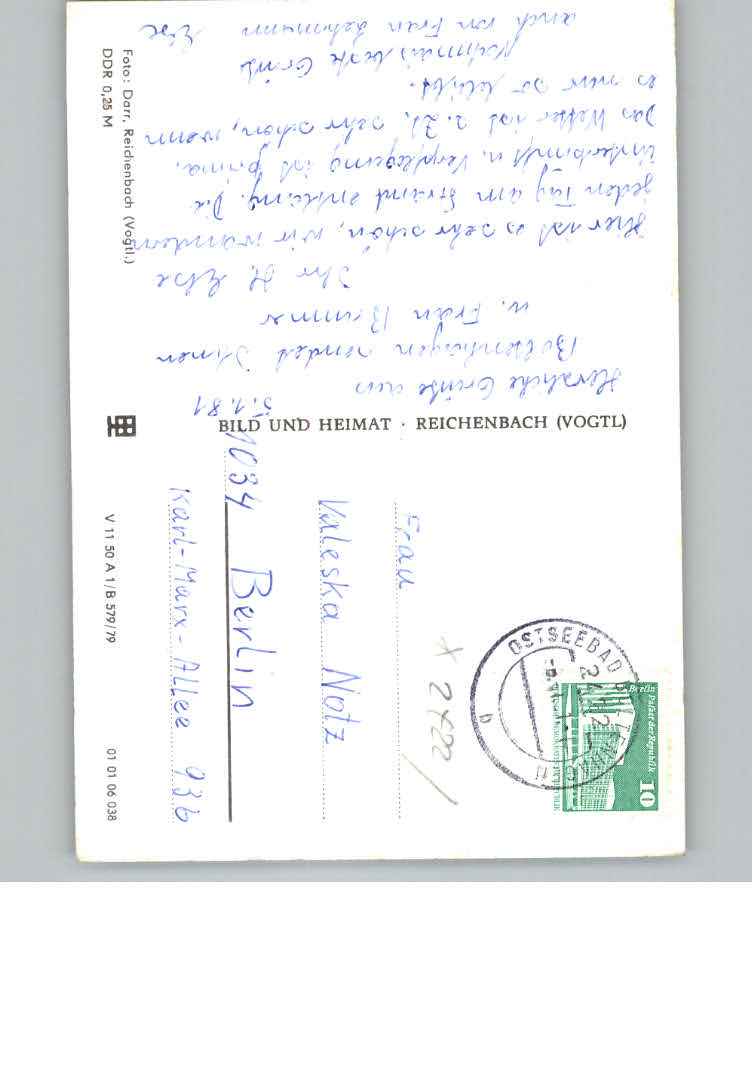 5.1.81
Herzliche Grüße aus
Boltenhagen sendet Ihnen
u. Frau Brummer
Ihr H. Else
Hier ist es sehr schön, wir wandern
jeden Tag am Strand entlang. Die
Unterkunft u. Verpflegung ist prima.
Das Wetter ist z. Zt. sehr schön, wenn
es nur so bleibt.
Nochmals herzl. Grüße
auch von Frau Lehmann Else
Foto: Darr, Reichenbach (Vogtl.)
DDR 0,25 M
BILD UND HEIMAT · REICHENBACH (VOGTL)
V 11 50 A 1/B 579/79
01 01 06 038
Frau
Valeska Notz
1034 Berlin
Karl-Marx-Allee 93b
OSTSEEBAD BOLTENHAGEN
2422
b
Berlin Palast der Republik
10
x 2422/